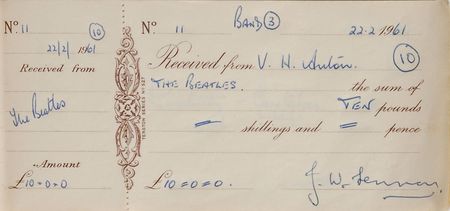 No. 11 (10)
22/2/1961
Received from
The Beatles
Amount
£10=0=0
TENSTON SERIES No 527
No. 11 BAND (3) 22.2.1961
Received from V. H. Anton. (10)
THE BEATLES. the sum of
TEN pounds
= shillings and = pence
£10=0=0. J. W. Lennon